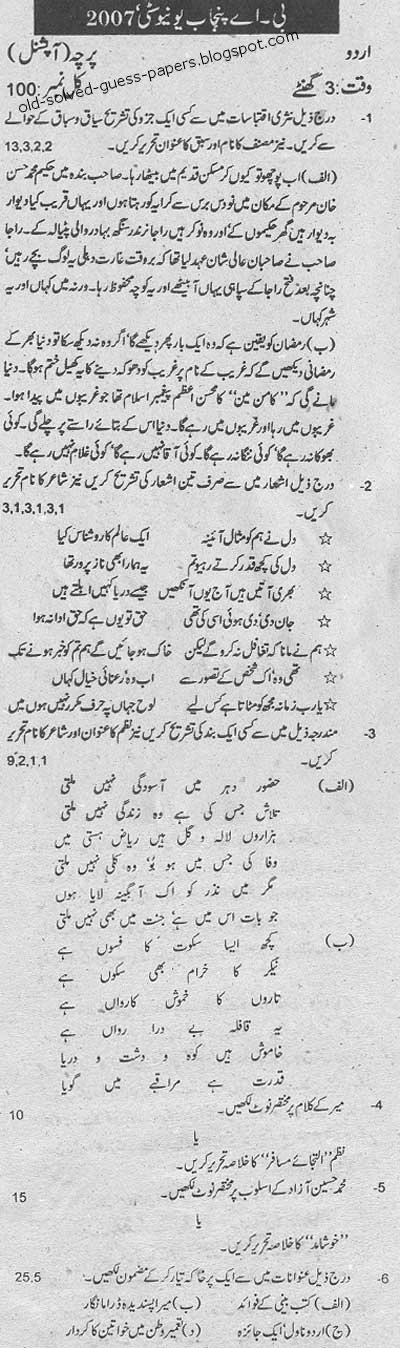 بی۔اے پنجاب یونیورسٹی 2007ء
اردو
پرچہ (آپشنل)
وقت: 3 گھنٹے
کل نمبر: 100
old-solved-guess-papers.blogspot.com
1- درج ذیل نثری اقتباسات میں سے کسی ایک جزو کی تشریح سیاق و سباق کے حوالے
سے کریں۔ نیز مصنف کا نام اور سبق کا عنوان تحریر کریں۔ 13,3,2,2
(الف) اب پوچھو تو کیوں کر مسکن قدیم میں بیٹھا رہا۔ صاحب بندہ میں حکیم محمد حسن
خان مرحوم کے مکان میں نو دس برس سے کرایہ کو رہتا ہوں اور یہاں قریب کیا دیوار
بہ دیوار ہیں گھر حکیموں کے اور وہ نوکر ہیں راجا نرندر سنگھ بہادر والی پٹیالہ کے۔ راجا
صاحب نے صاحبان عالی شان عہد لیا تھا کہ بروقت غارت دہلی یہ لوگ بچے رہیں'
چنانچہ بعد فتح راجا کے سپاہی یہاں آ بیٹھے اور یہ کوچہ محفوظ رہا۔ ورنہ میں کہاں اور یہ
شہر کہاں۔
(ب) رمضان کو یقین ہے کہ وہ ایک بار پھر دیکھے گا' اگر وہ نہ دیکھ سکا تو دنیا بھر کے
رمضانی دیکھیں گے کہ غریب کے نام پر غریب کو دھوکہ دینے کا یہ کھیل ختم ہوگا۔ دنیا
مانے گی کہ "کامن مین" کا محسن اعظم پیغمبر اسلام تھا جو غریبوں میں پیدا ہوا۔
غریبوں میں رہا اور غریبوں میں رہے گا۔ دنیا اس کے بتائے راستے پر چلے گی۔ کوئی
بھوکا نہ رہے گا' کوئی ننگا نہ رہے گا۔ کوئی آقا نہیں رہے گا' کوئی غلام نہیں رہے گا۔
2- درج ذیل اشعار میں سے صرف تین اشعار کی تشریح کریں نیز شاعر کا نام تحریر
کریں۔ 3,1,3,1,3,1
☆ دل نے ہم کو مثال آئینہ ایک عالم کا روشناس کیا
☆ دل کی کچھ قدر کرتے رہیو تم یہ ہمارا بھی ناز پرور تھا
☆ بھری آتیں ہیں آج یوں آنکھیں جیسے دریا کہیں ابلتے ہیں
☆ جان دی' دی ہوئی اسی کی تھی حق تو یوں ہے کہ حق ادا نہ ہوا
☆ ہم نے مانا کہ تغافل نہ کرو گے لیکن خاک ہو جائیں گے ہم تم کو خبر ہونے تک
☆ تھی وہ اک شخص کے تصور سے اب وہ رعنائی خیال کہاں
☆ یارب زمانہ مجھ کو مٹاتا ہے کس لیے لوح جہاں پہ حرف مکرر نہیں ہوں میں
3- مندرجہ ذیل میں سے کسی ایک بند کی تشریح کریں نیز نظم کا عنوان اور شاعر کا نام تحریر
کریں۔ 9,2,1,1
(الف) حضور دہر میں آسودگی نہیں ملتی
تلاش جس کی ہے وہ زندگی نہیں ملتی
ہزاروں لالہ و گل ہیں ریاض ہستی میں
وفا کی جس میں ہو بو' وہ کلی نہیں ملتی
مگر میں نذر کو اک آبگینہ لایا ہوں
جو بات اس میں ہے' جنت میں بھی نہیں ملتی
(ب) کچھ ایسا سکوت کا فسوں ہے
نیکر کا خرام بھی سکوں ہے
تاروں کا خموش کارواں ہے
یہ قافلہ بے درا رواں ہے
خاموش ہیں کوہ و دشت و دریا
قدرت ہے مراقبے میں گویا
4- میر کے کلام پر مختصر نوٹ لکھیں۔ 10
یا
نظم "التجائے مسافر" کا خلاصہ تحریر کریں۔
5- محمد حسین آزاد کے اسلوب پر مختصر نوٹ لکھیں۔ 15
یا
"خوشامد" کا خلاصہ تحریر کریں۔
6- درج ذیل عنوانات میں سے ایک پر خاکہ تیار کر کے مضمون لکھیں۔ 25,5
(الف) کتب بینی کے فوائد (ب) میرا پسندیدہ ڈراما نگار
(ج) اردو ناول' ایک جائزہ (د) تعمیر وطن میں خواتین کا کردار